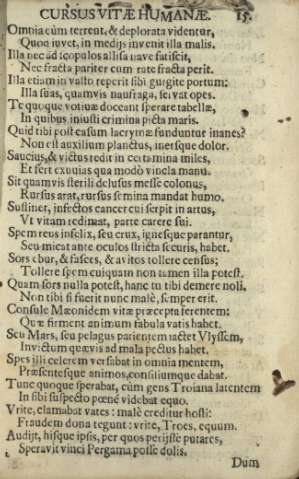 CURSUS VITÆ HUMANÆ. 15.
Omnia cùm terrent, & deplorata videntur,
Quod iuvet, in medijs invenit illa malis.
Illa nec ad scopulos allisa nave fatiscit,
Nec fracta pariter cum rate fracta perit.
Illa etiam in vasto reperit sibi gurgite portum:
Illa suas, quamvis naufraga, servat opes.
Te quoque votivæ doceant sperare tabellæ,
In quibus iniusti crimina picta maris.
Quid tibi post casum lacrymæ funduntur inanes?
Non est auxilium planctus, inersque dolor.
Saucius, & victus redit in certamina miles,
Et fert exuvias qua modò vincla manu.
Sit quamvis sterili delusus messe colonus,
Rursus arat, rursus semina mandat humo.
Sustinet, infectos cancer cui serpit in artus,
Vt vitam redimat, parte carere sui.
Spem reus infelix, seu crux, ignesque parantur,
Seu micat ante oculos stricta securis, habet.
Sors ebur, & fasces, & avitos tollere census;
Tollere spem cuiquam non tamen illa potest.
Quam sors nulla potest, hanc tu tibi demere noli.
Non tibi si fuerit nunc malè, semper erit.
Consule Mæonidem vitæ præcepta ferentem:
Quæ firment animum fabula vatis habet.
Seu Mars, seu pelagus parientem iactet Vlyssem,
Invictum quævis ad mala pectus habet.
Spes illi celerem versabat in omnia mentem,
Præsentesque animos, consiliumque dabat.
Tunc quoque sperabat, cùm gens Troiana latentem
In sibi suspecto pœnè videbat equo.
Vrite, clamabat vates: malè creditur hosti:
Fraudem dona tegunt: vrite, Troes, equum.
Audijt, hisque ipsis, per quos perijsse putares,
Speravit vinci Pergama posse dolis.
Dum